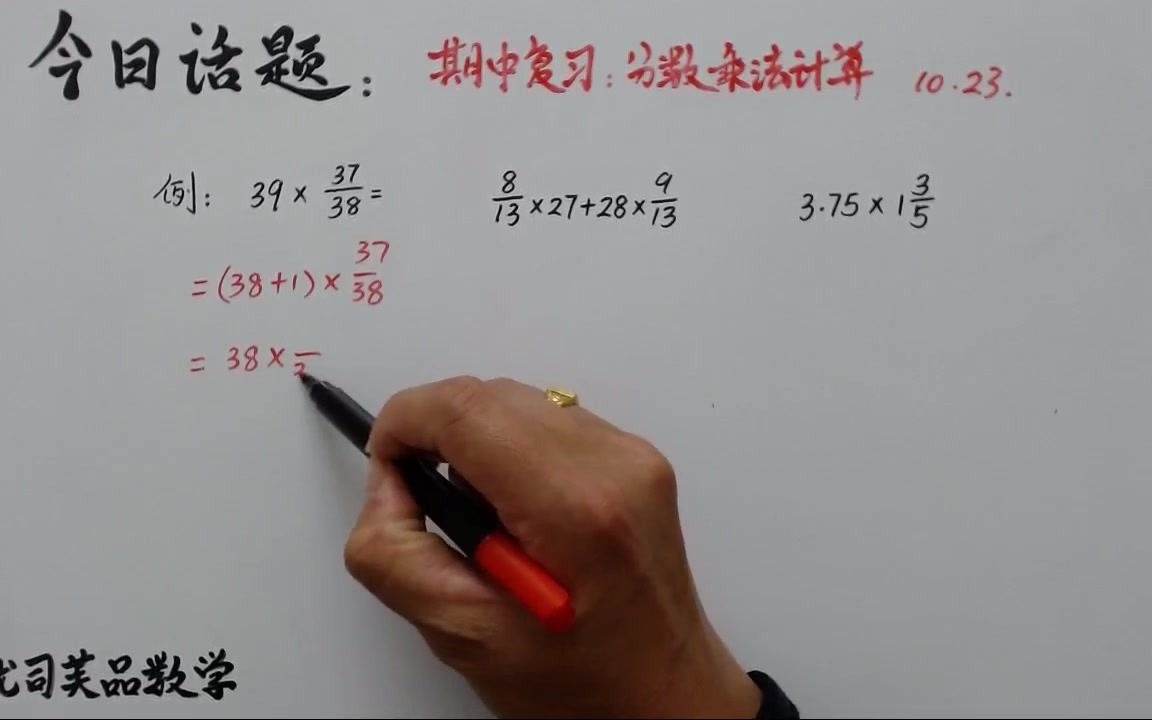 今日话题： 期中复习：分数乘法计算 10.23.
例： 39 × 37/38 = 8/13 ×27+28× 9/13 3.75 × 1 3/5
= (38+1) × 37/38
= 38 ×
司芙品数学